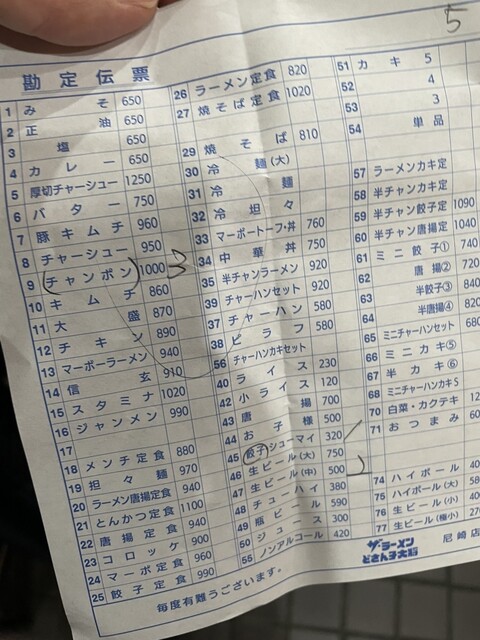 5
勘定伝票
1 みそ 650
2 正油 650
3 塩 650
4 カレー 650
5 厚切チャーシュー 1250
6 バター 750
7 豚キムチ 960
8 チャーシュー 950
9 チャンポン 1000
10 キムチ 860
11 大盛 870
12 チキン 890
13 マーボーラーメン 940
14 信玄 910
15 スタミナ 1020
16 ジャンメン 990
17
18 メンチ定食 880
19 担々麺 970
20 ラーメン唐揚定食 940
21 とんかつ定食 1100
22 唐揚定食 940
23 コロッケ 900
24 マーボ定食 960
25 餃子定食 990
毎度有難うございます。
26 ラーメン定食 820
27 焼そば定食 1020
29 焼そば 810
30 冷麺(大)
31 冷麺
32 冷坦々
33 マーボートーフ・丼 760
34 中華丼 750
35 半チャンラーメン 920
39 チャーハンセット 920
37 チャーハン 580
38 ピラフ 580
56 チャーハンカキセット
40 ライス 230
42 小ライス 120
43 唐揚 700
44 お子様 500
45 餃子シューマイ 320
46 生ビール(大) 750
47 生ビール(中) 500
48 チューハイ 380
49 瓶ビール 590
50 ジュース 300
55 ノンアルコール 420
51 カキ 5
52 4
53 3
54 単品
57 ラーメンカキ定
58 半チャンカキ定
59 半チャン餃子定 1090
60 半チャン唐揚定 1040
61 ミニ餃子① 740
62 唐揚② 720
63 半餃子③ 840
64 半唐揚④ 820
65 ミニチャーハンセット 680
66 ミニカキ⑤
67 半カキ⑥
68 ミニチャーハンカキS
70 白菜・カクテキ
71 おつまみ
74 ハイボール
75 ハイボール(大)
76 生ビール(小)
77 生ビール(極小)
ザ・ラーメン
どさん子大将
尼崎店